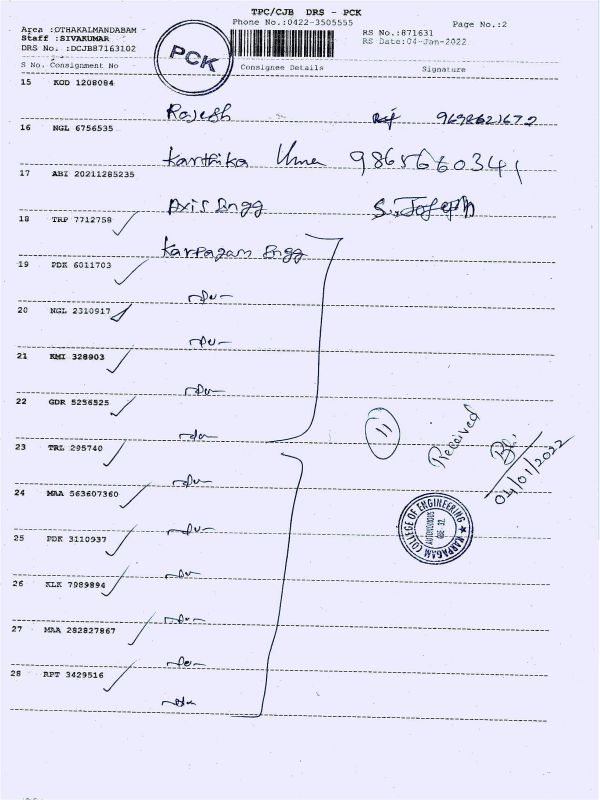 TPC/CJB DRS - PCK
Phone No.:0422-3505555
Page No.:2
Area :OTHAKALMANDABAM -
Staff :SIVAKUMAR
DRS No. :DCJB87163102
PCK
RS No.:871631
RS Date:04-Jan-2022
S No. Consignment No Consignee Details Signature
15 KOD 1208084
Rajesh
16 NGL 6756535
Karthika Uma 9865660341
17 ABI 20211285235
Axis Engg S. Joseph
18 TRP 7712758
Karpagam Engg
19 PDK 6011703
20 NGL 2310917
21 KMI 328903
22 GDR 5256525
23 TRL 295740
11
Received
04/01/2022
24 MAA 563607360
COLLEGE OF ENGINEERING ★ KARPAGAM
AUTONOMOUS
CBE - 32.
25 PDK 3110937
26 KLK 7989894
27 MAA 282827867
28 RPT 3429516